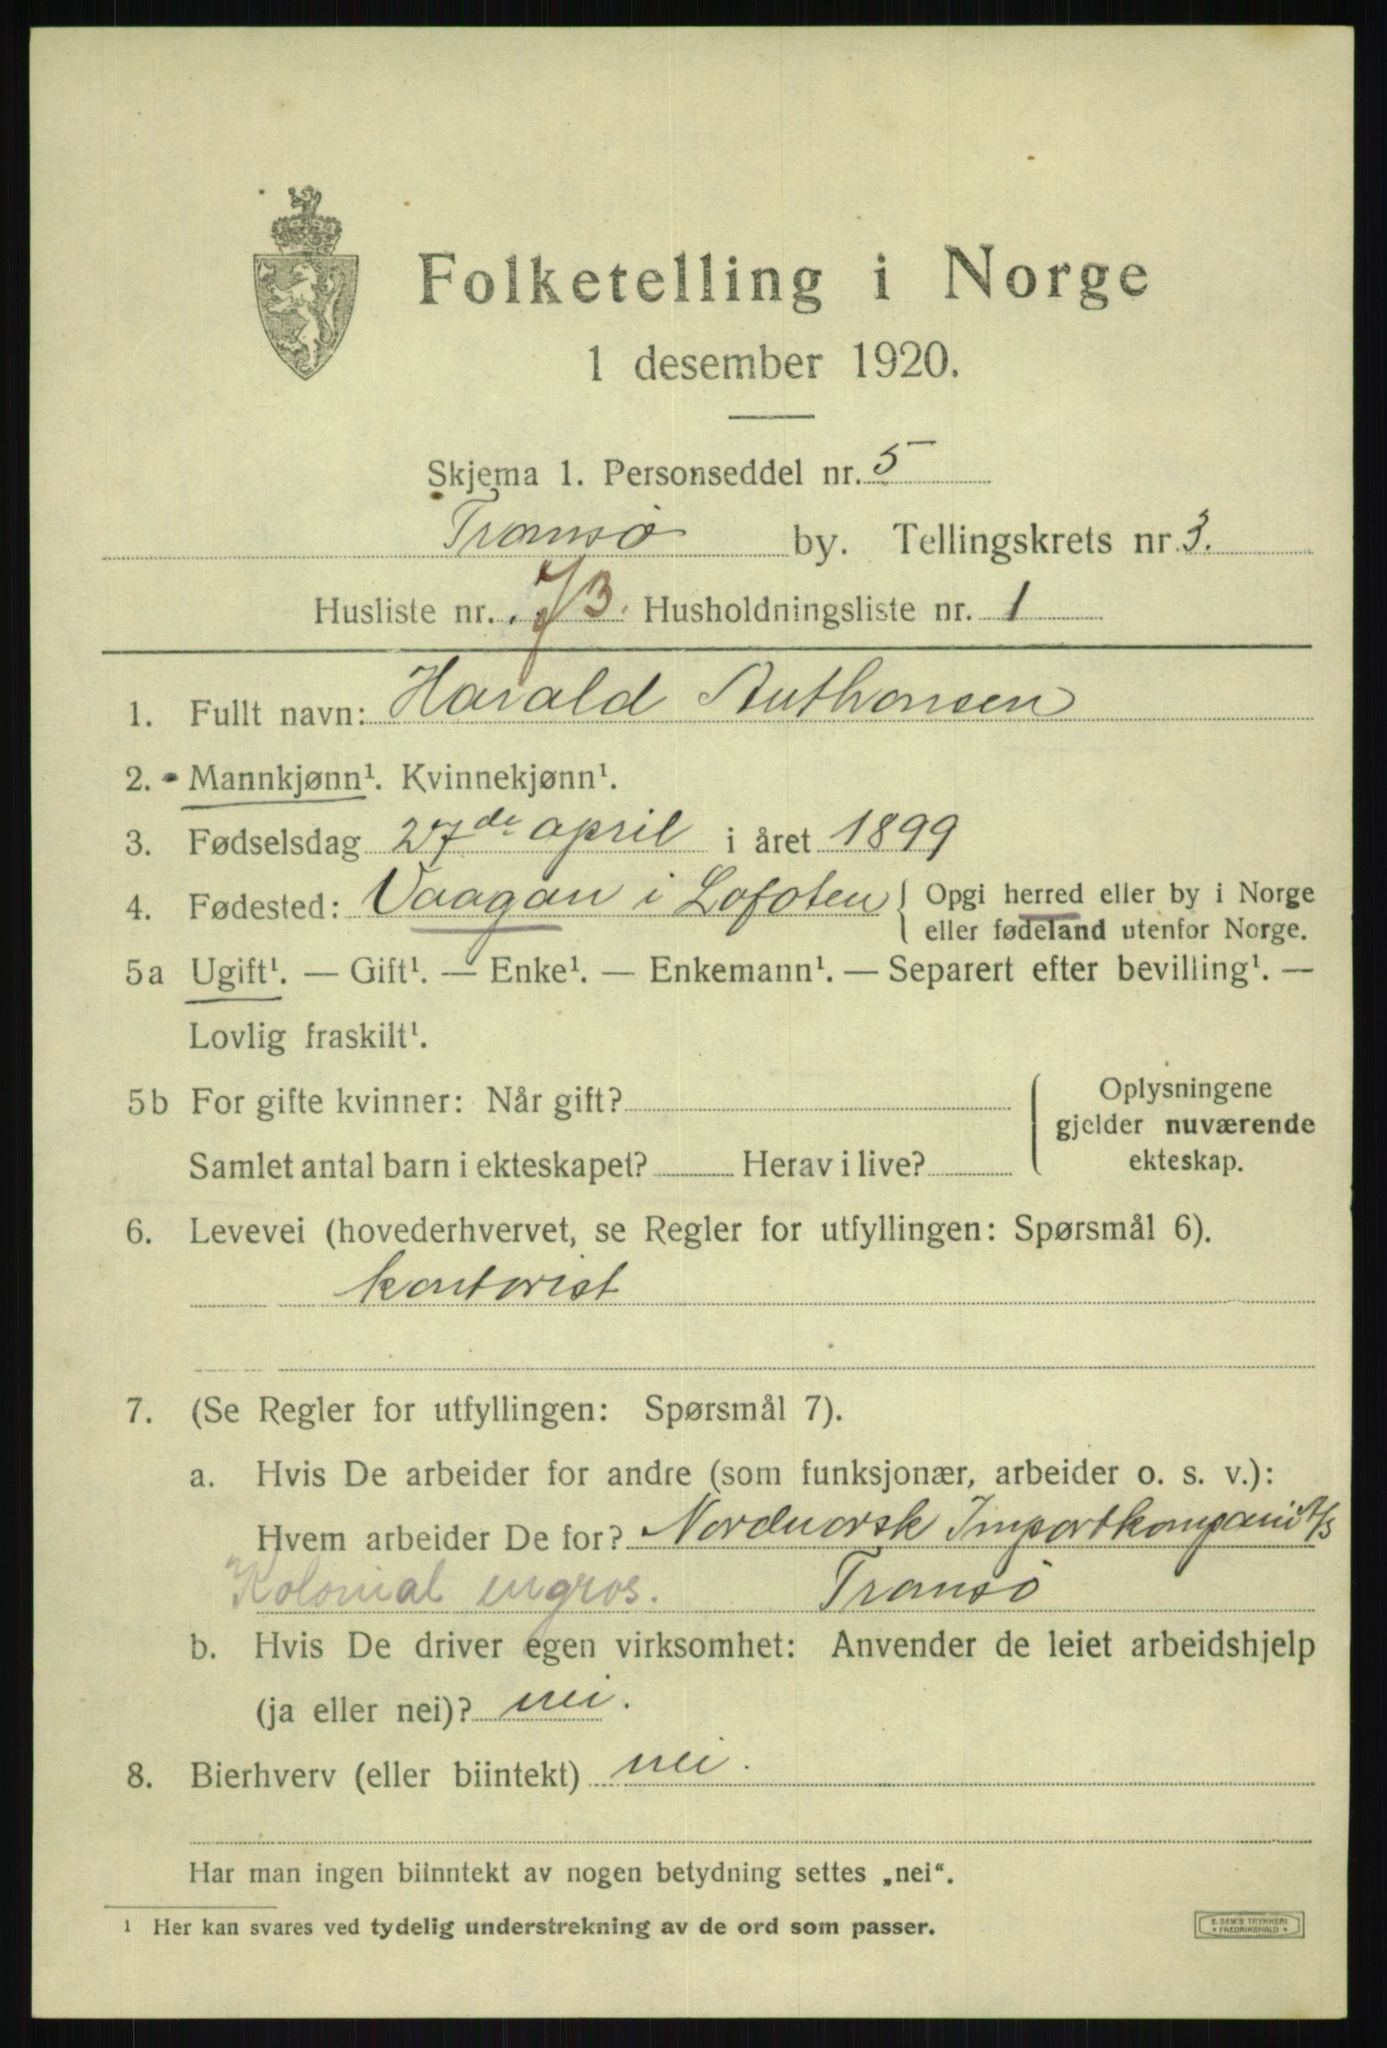 Folketelling i Norge
1 desember 1920.
Skjema 1. Personseddel nr. 5
Tromsø by. Tellingskrets nr. 3.
Husliste nr. 73. Husholdningsliste nr. 1
1. Fullt navn: Harald Anthonsen
2. Mannkjønn¹. Kvinnekjønn¹.
3. Fødselsdag 27de april i året 1899
4. Fødested: Vaagan i Lofoten { Opgi herred eller by i Norge
eller fødeland utenfor Norge.
5a Ugift¹. — Gift¹. — Enke¹. — Enkemann¹. — Separert efter bevilling¹. —
Lovlig fraskilt¹.
5b For gifte kvinner: Når gift?
Samlet antal barn i ekteskapet? Herav i live?
Oplysningene
gjelder nuværende
ekteskap.
6. Levevei (hovederhvervet, se Regler for utfyllingen: Spørsmål 6).
kontorist
7. (Se Regler for utfyllingen: Spørsmål 7).
a. Hvis De arbeider for andre (som funksjonær, arbeider o. s. v.):
Hvem arbeider De for? Nordnorsk Importkompani A/S
Kolonial engros. Tromsø
b. Hvis De driver egen virksomhet: Anvender de leiet arbeidshjelp
(ja eller nei)? nei.
8. Bierhverv (eller biintekt) nei.
Har man ingen biinntekt av nogen betydning settes „nei“.
¹ Her kan svares ved tydelig understrekning av de ord som passer.
E. SEM'S TRYKKERI
* FREDRIKSHALD *